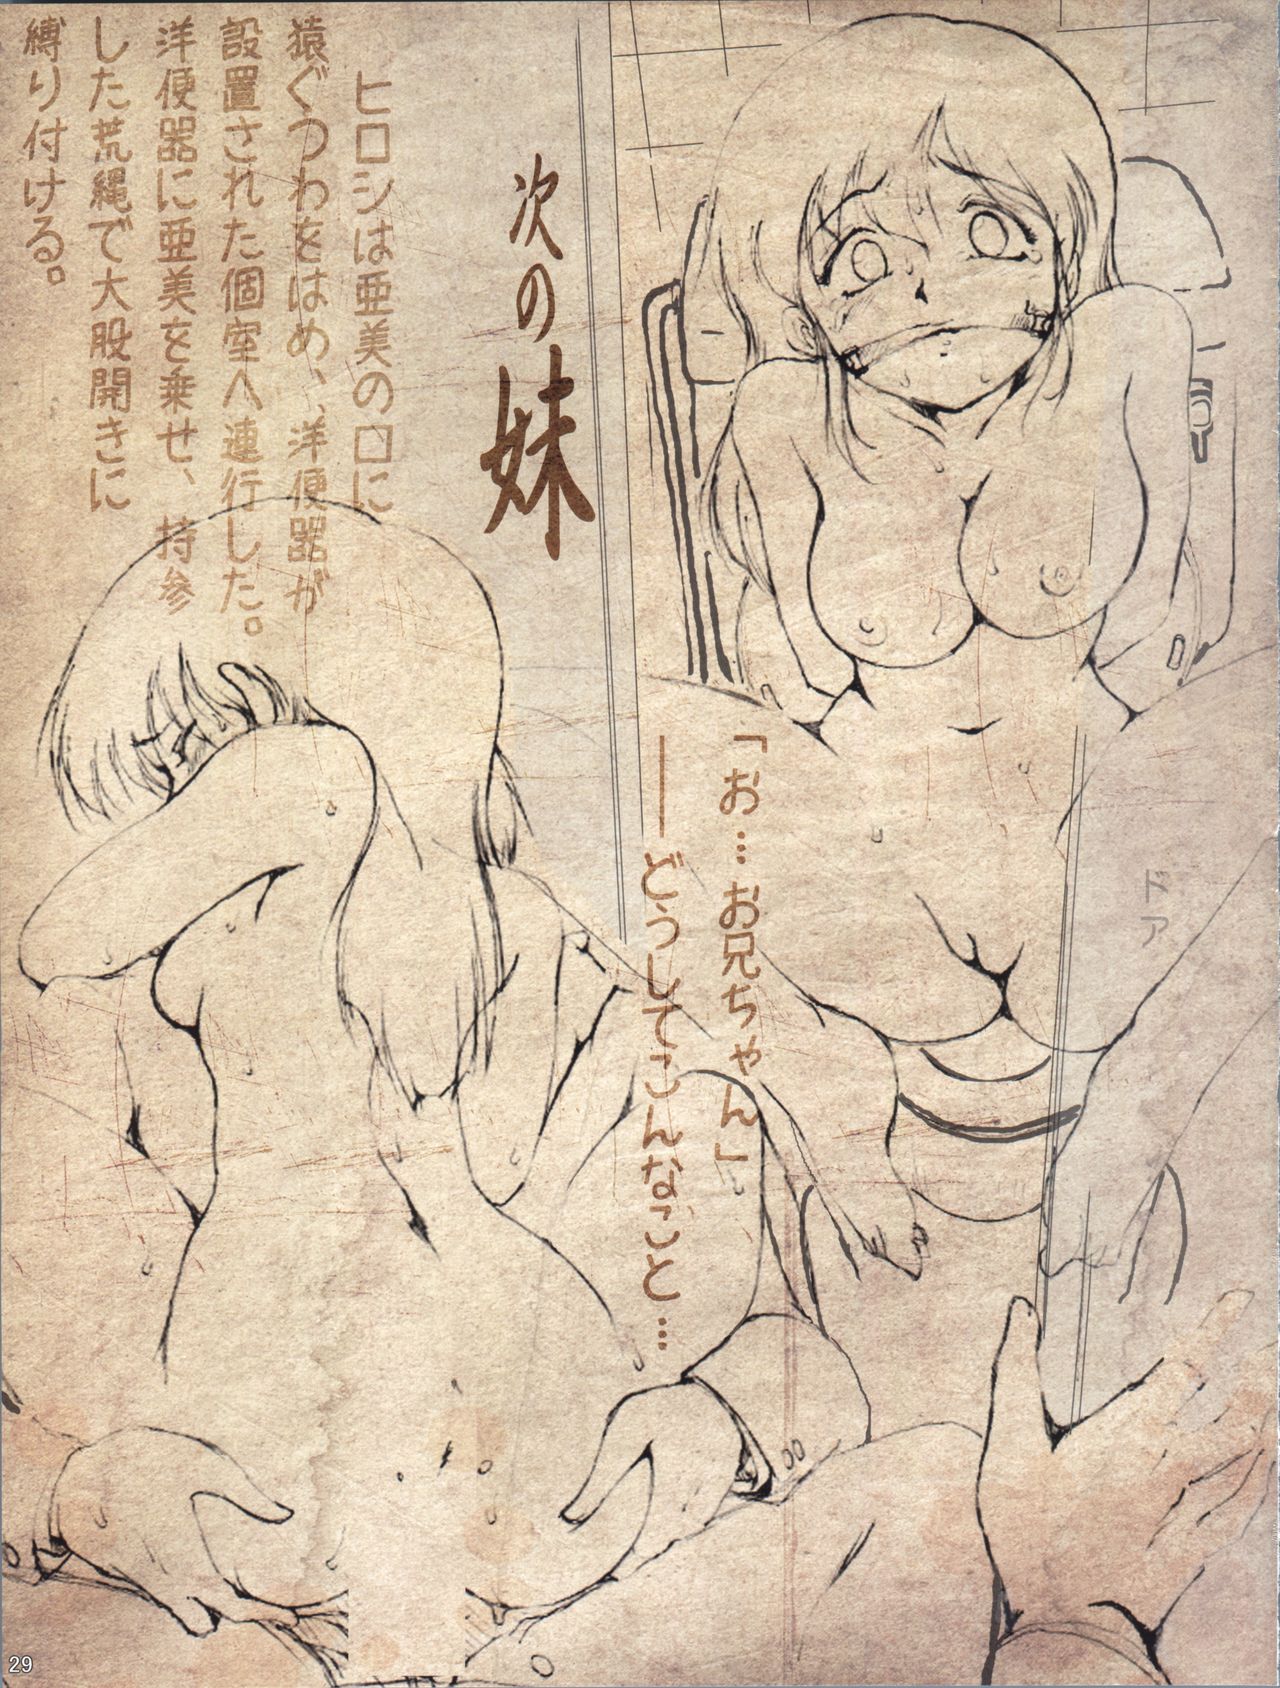 次の妹
ヒロシは亜美の口に
猿ぐつわをはめ、洋便器が
設置された個室へ連行した。
洋便器に亜美を乗せ、持参
した荒縄で大股開きに
縛り付ける。
「お…お兄ちゃん」
――どうしてこんなこと…
ドア
29